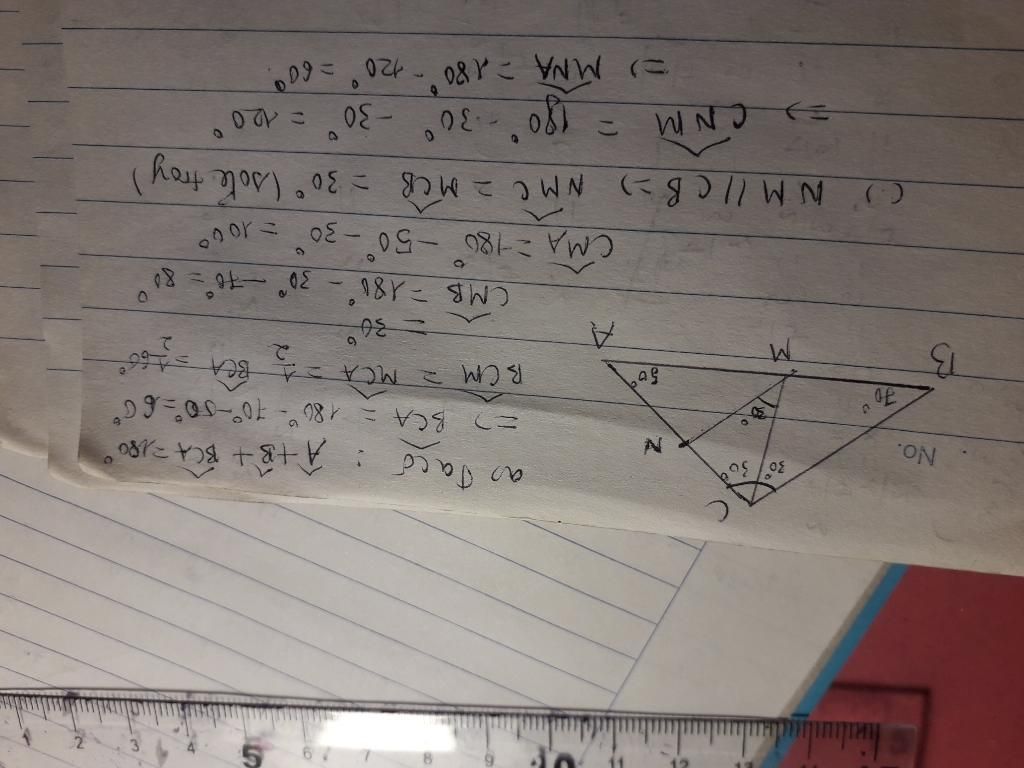 No.
C
30° 30°
N
30°
50°
70°
A
M
B
a) Ta có : Â + B̂ + BCÂ = 180°
=> BCÂ = 180° - 70° - 50° = 60°
BCM̂ = MCÂ = 1/2 BCÂ = 1/2 60°
= 30°
CMB̂ = 180° - 30° - 70° = 80°
CMÂ = 180° - 50° - 30° = 100°
c) NM // CB => NMĈ = MCB̂ = 30° (sole trog)
=> CNM̂ = 180° - 30° - 30° = 120°
=> MNÂ = 180° - 120° = 60°
1 2 3 4 5 6 7 8 9 10 11 12 13 14